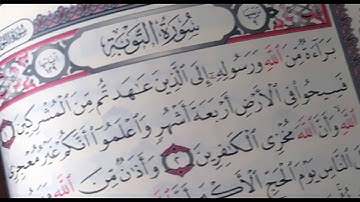 سُورَةُ التَّوْبَةِ
بَرَاءَةٌ مِّنَ اللَّهِ وَرَسُولِهِ إِلَى الَّذِينَ عَاهَدتُّم مِّنَ الْمُشْرِكِينَ ١
فَسِيحُوا فِي الْأَرْضِ أَرْبَعَةَ أَشْهُرٍ وَاعْلَمُوا أَنَّكُمْ غَيْرُ مُعْجِزِي
اللَّهِ وَأَنَّ اللَّهَ مُخْزِي الْكَافِرِينَ ٢ وَأَذَانٌ مِّنَ اللَّهِ
النَّاسِ يَوْمَ الْحَجِّ الْأَكْبَرِ